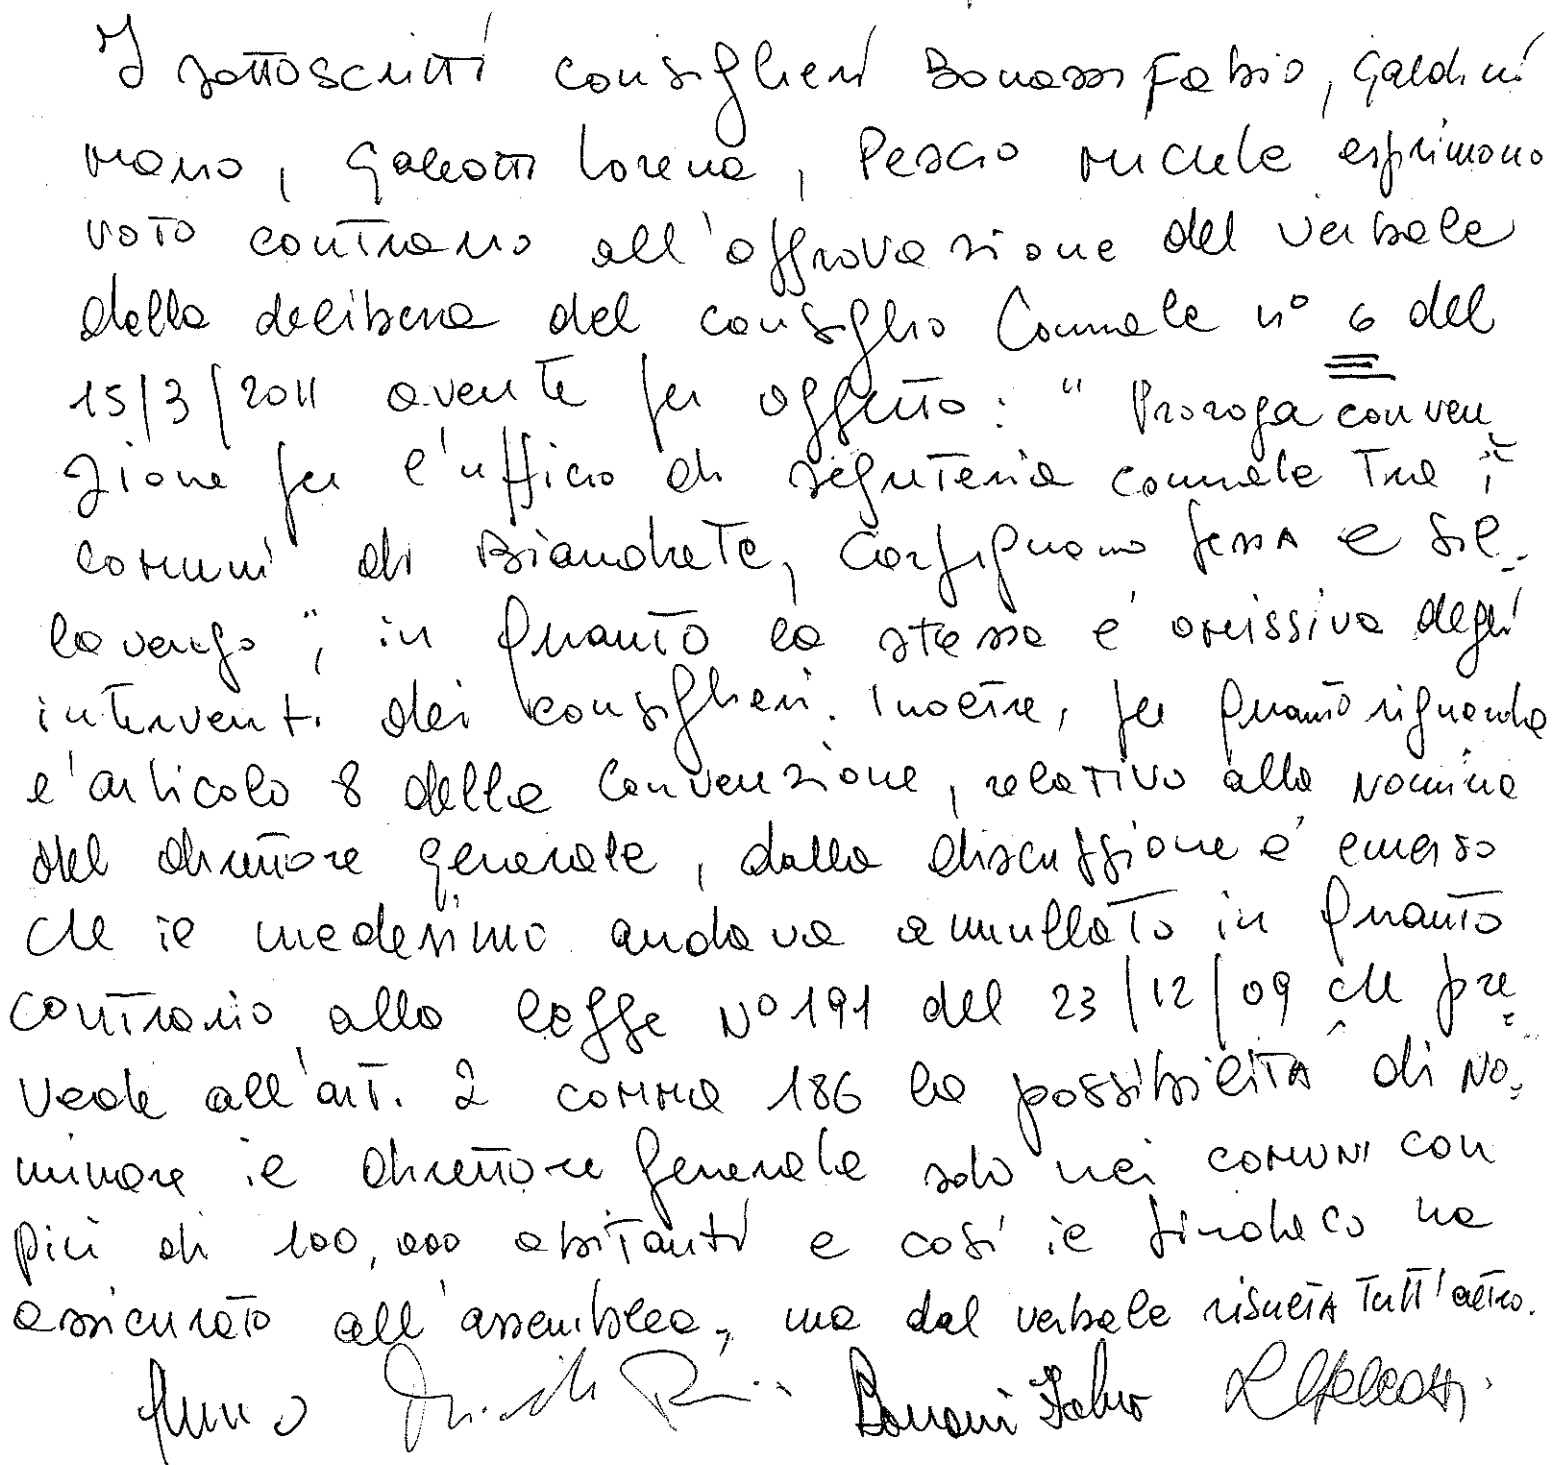 I sottoscritti consiglieri Bonassi Fabio, Galdini
Mario, Galeotti Lorena, Pescio Michele esprimono
voto contrario all'approvazione del verbale
della delibera del consiglio Comunale n° 6 del
15/3/2011 avente per oggetto: "Proroga conven
zione per l'ufficio di segreteria comunale tra i
comuni di Biandrate, Casfignano sessa e Sil-
lavengo", in quanto la stessa e' omissiva degli
interventi dei consiglieri. Inoltre, per quanto riguarda
l'articolo 8 della Convenzione, relativo alla nomina
del direttore generale, dalla discussione e' emerso
che il medesimo andava annullato in quanto
contrario alla legge N° 191 del 23/12/09 che pre
vede all'art. 2 comma 186 la possibilità di no-
minare il direttore generale solo nei comuni con
più di 100,000 abitanti e così il sindaco ha
assicurato all'assemblea, ma dal verbale risulta tutt'altro.
Bonassi Fabio L Galeotti